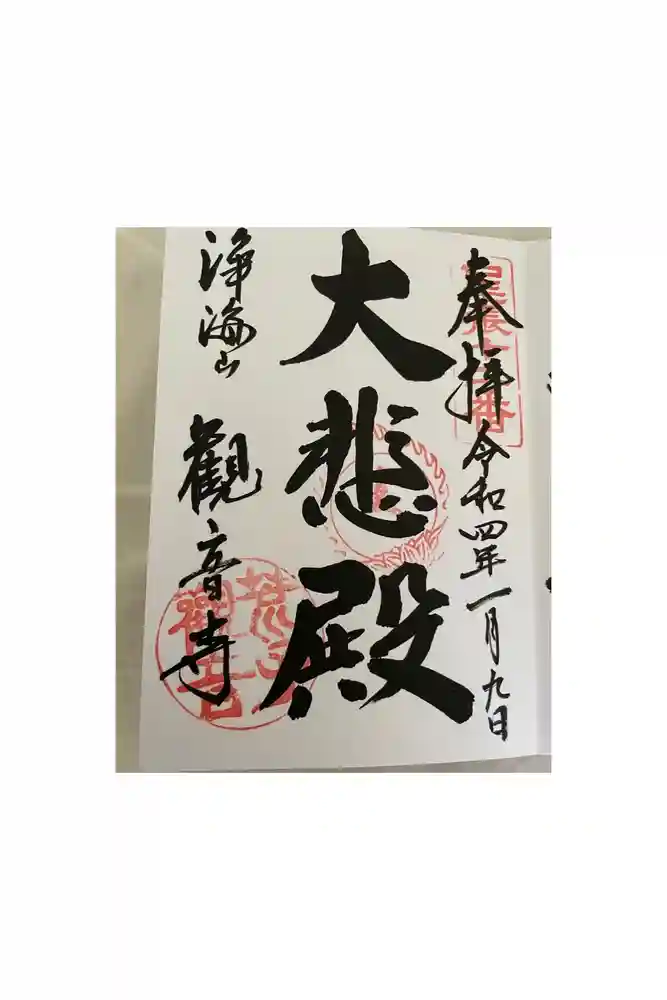 奉拝 令和四年一月九日
大悲殿
浄海山 觀音寺